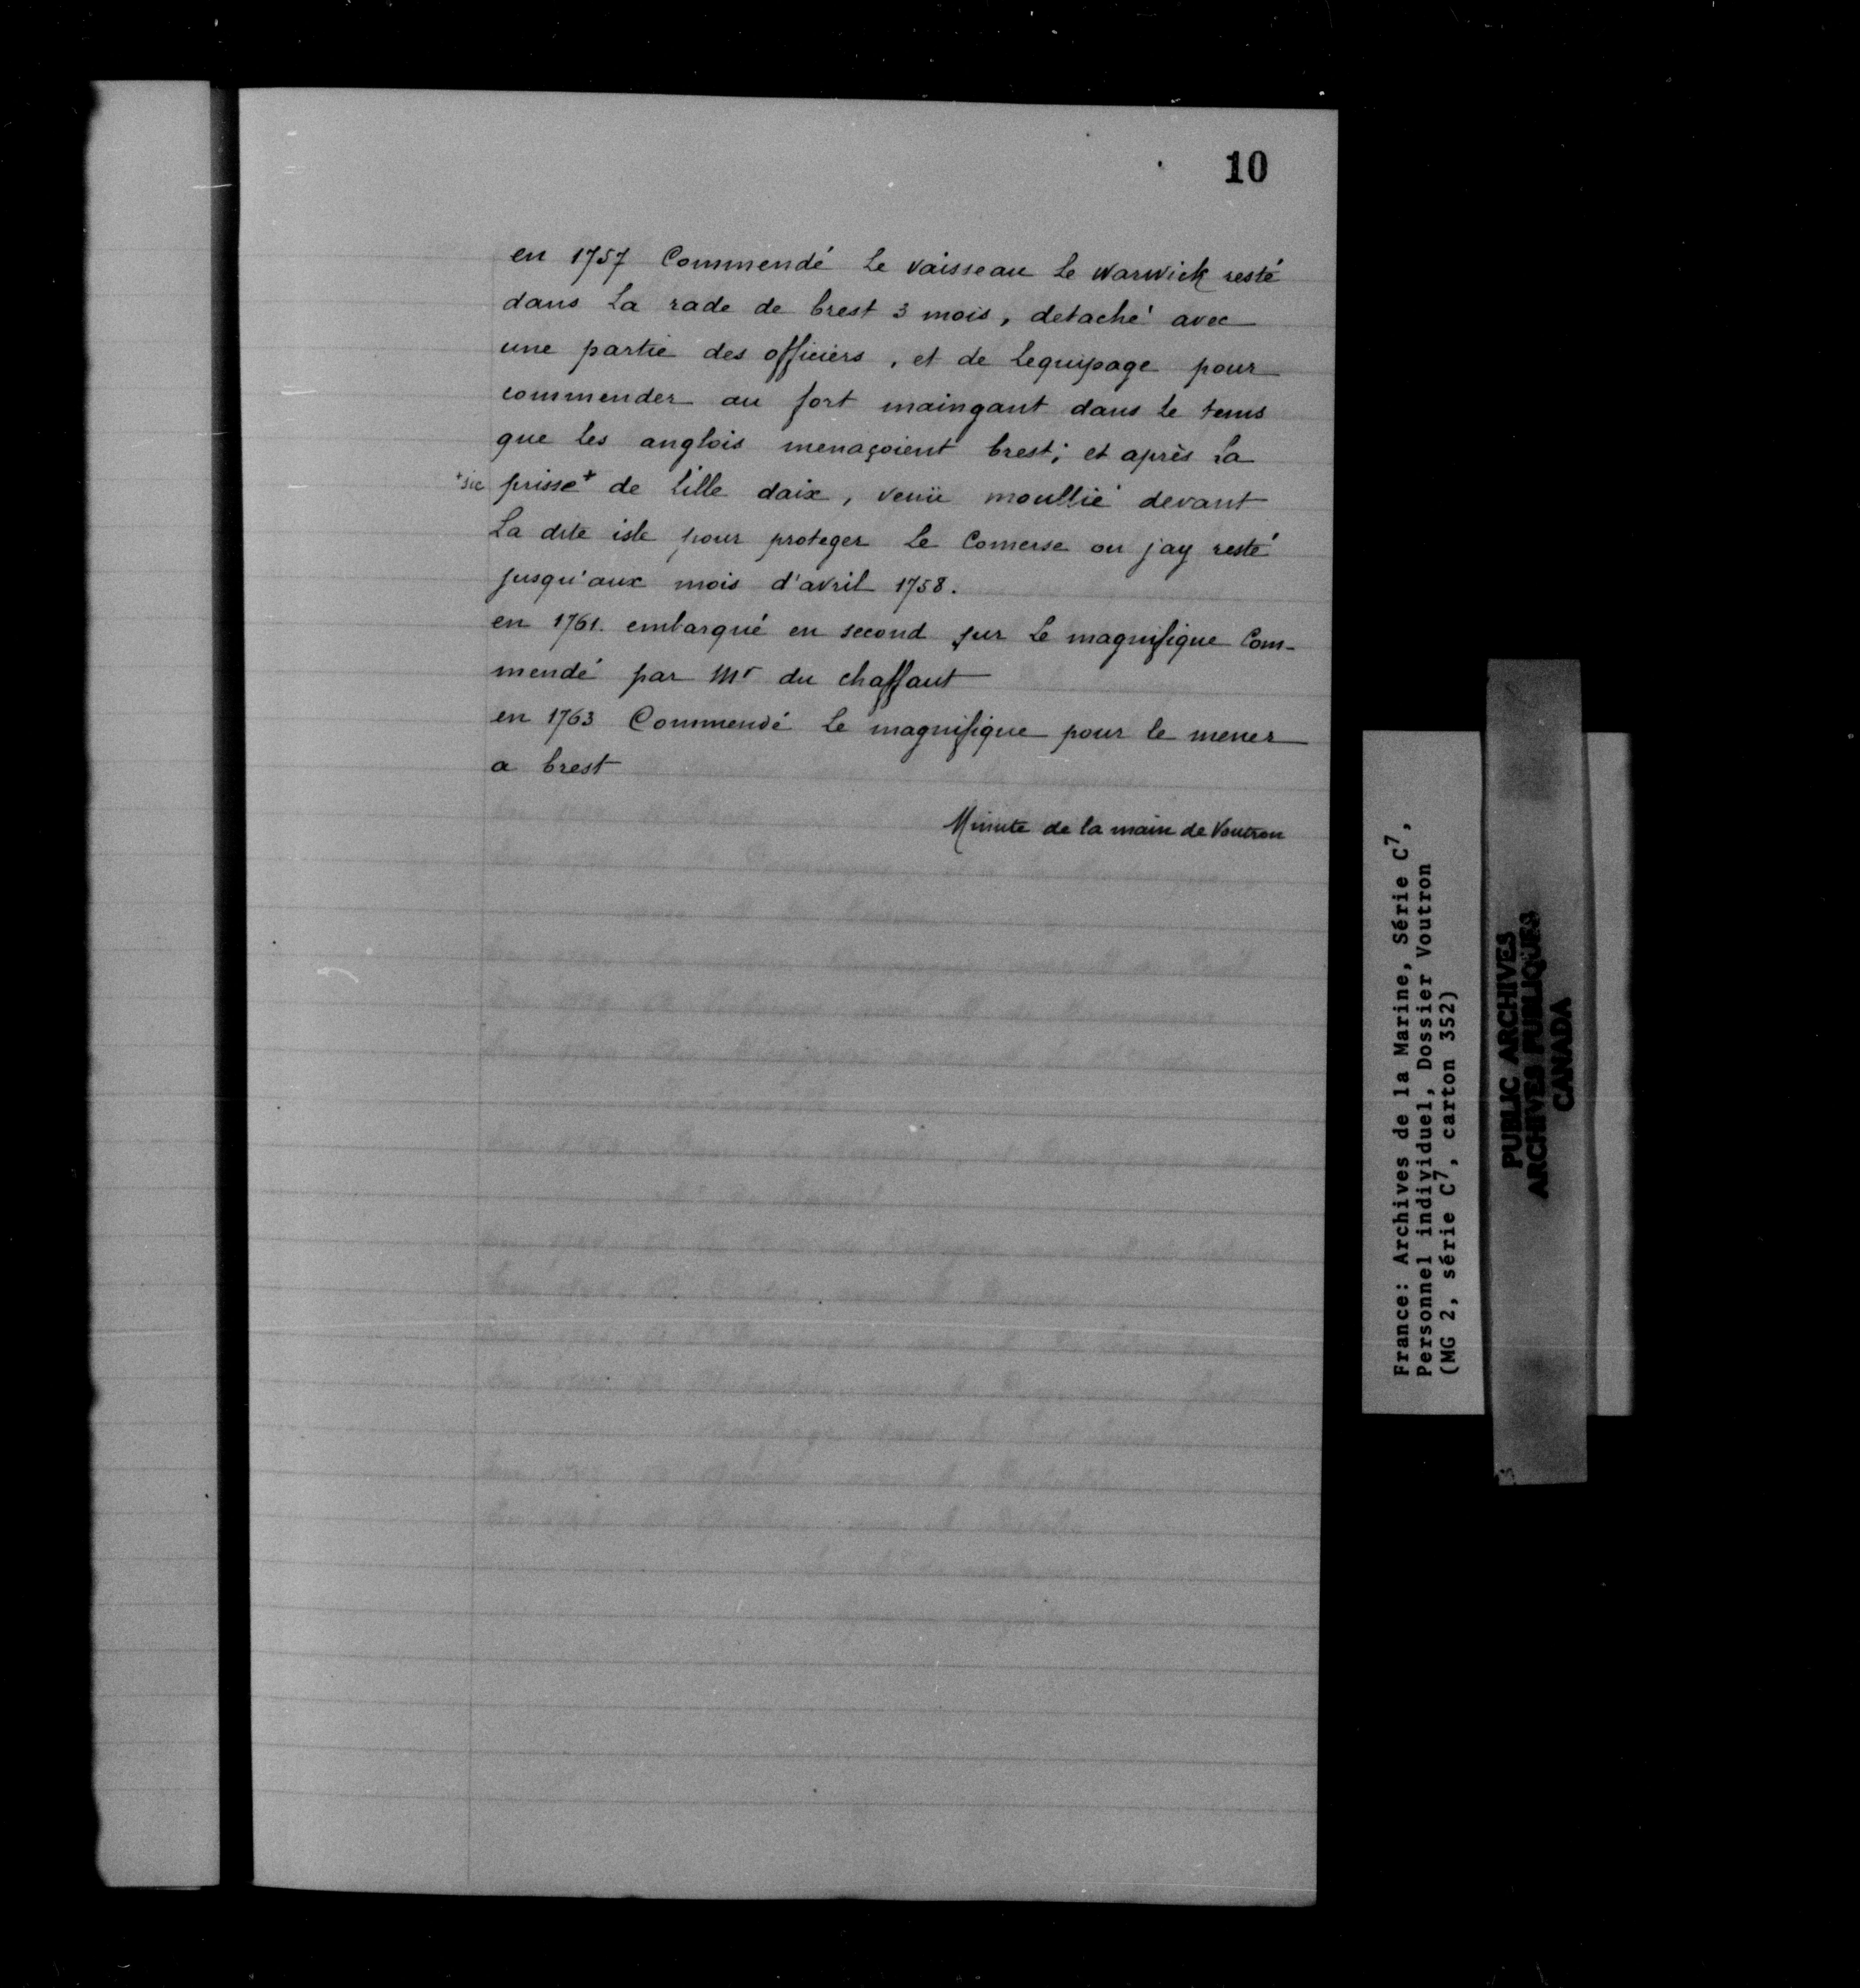 10
en 1757 Commendé Le vaisseau Le Warwick resté
dans La rade de brest 3 mois, detaché avec
une partie des officiers, et de Lequipage pour
commender au fort maingant dans Le tems
que Les anglois menaçoient brest; et après La
+sic prisse+ de Lille daix, venüe moullié devant
La dite isle pour proteger Le Comerse ou j'ay resté
jusqu'aux mois d'avril 1758.
en 1761. embarqué en second sur Le magnifique Com-
mendé par Mr du chaffaut
en 1763 Commendé Le magnifique pour le mener
a brest
Minute de la main de Voutron
France: Archives de la Marine, Série C7,
Personnel individuel, Dossier Voutron
(MG 2, série C7, carton 352)
PUBLIC ARCHIVES
ARCHIVES PUBLIQUES
CANADA